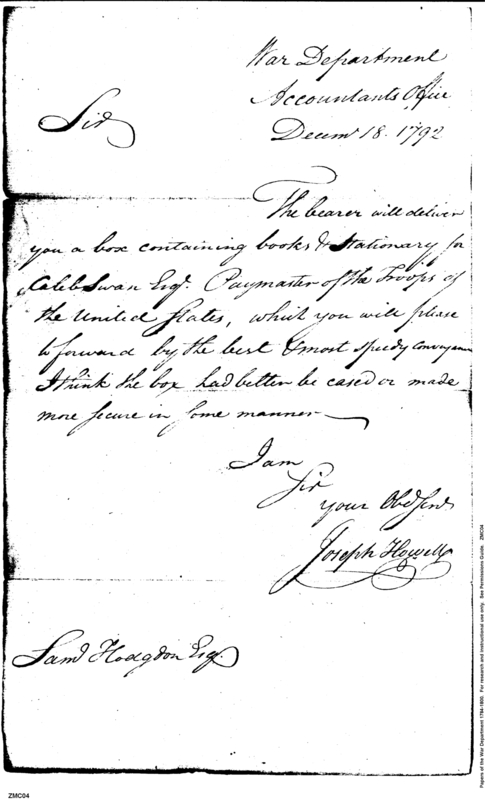 War Department
Accountants Office
Decemr 18. 1792
Sir
The bearer will deliver
you a box containing books & Stationary for
Caleb Swan Esqr. Paymaster of the Troops of
the United States, which you will please
to forward by the best & most speedy conveyance
I think the box had better be cased or made
more secure in some manner
I am
Sir
your Obed Servt
Joseph Howell
Saml Hodgdon Esqr.
ZMC04
Papers of the War Department 1784-1800. For research and instructional use only. See Permissions Guide. ZMC04